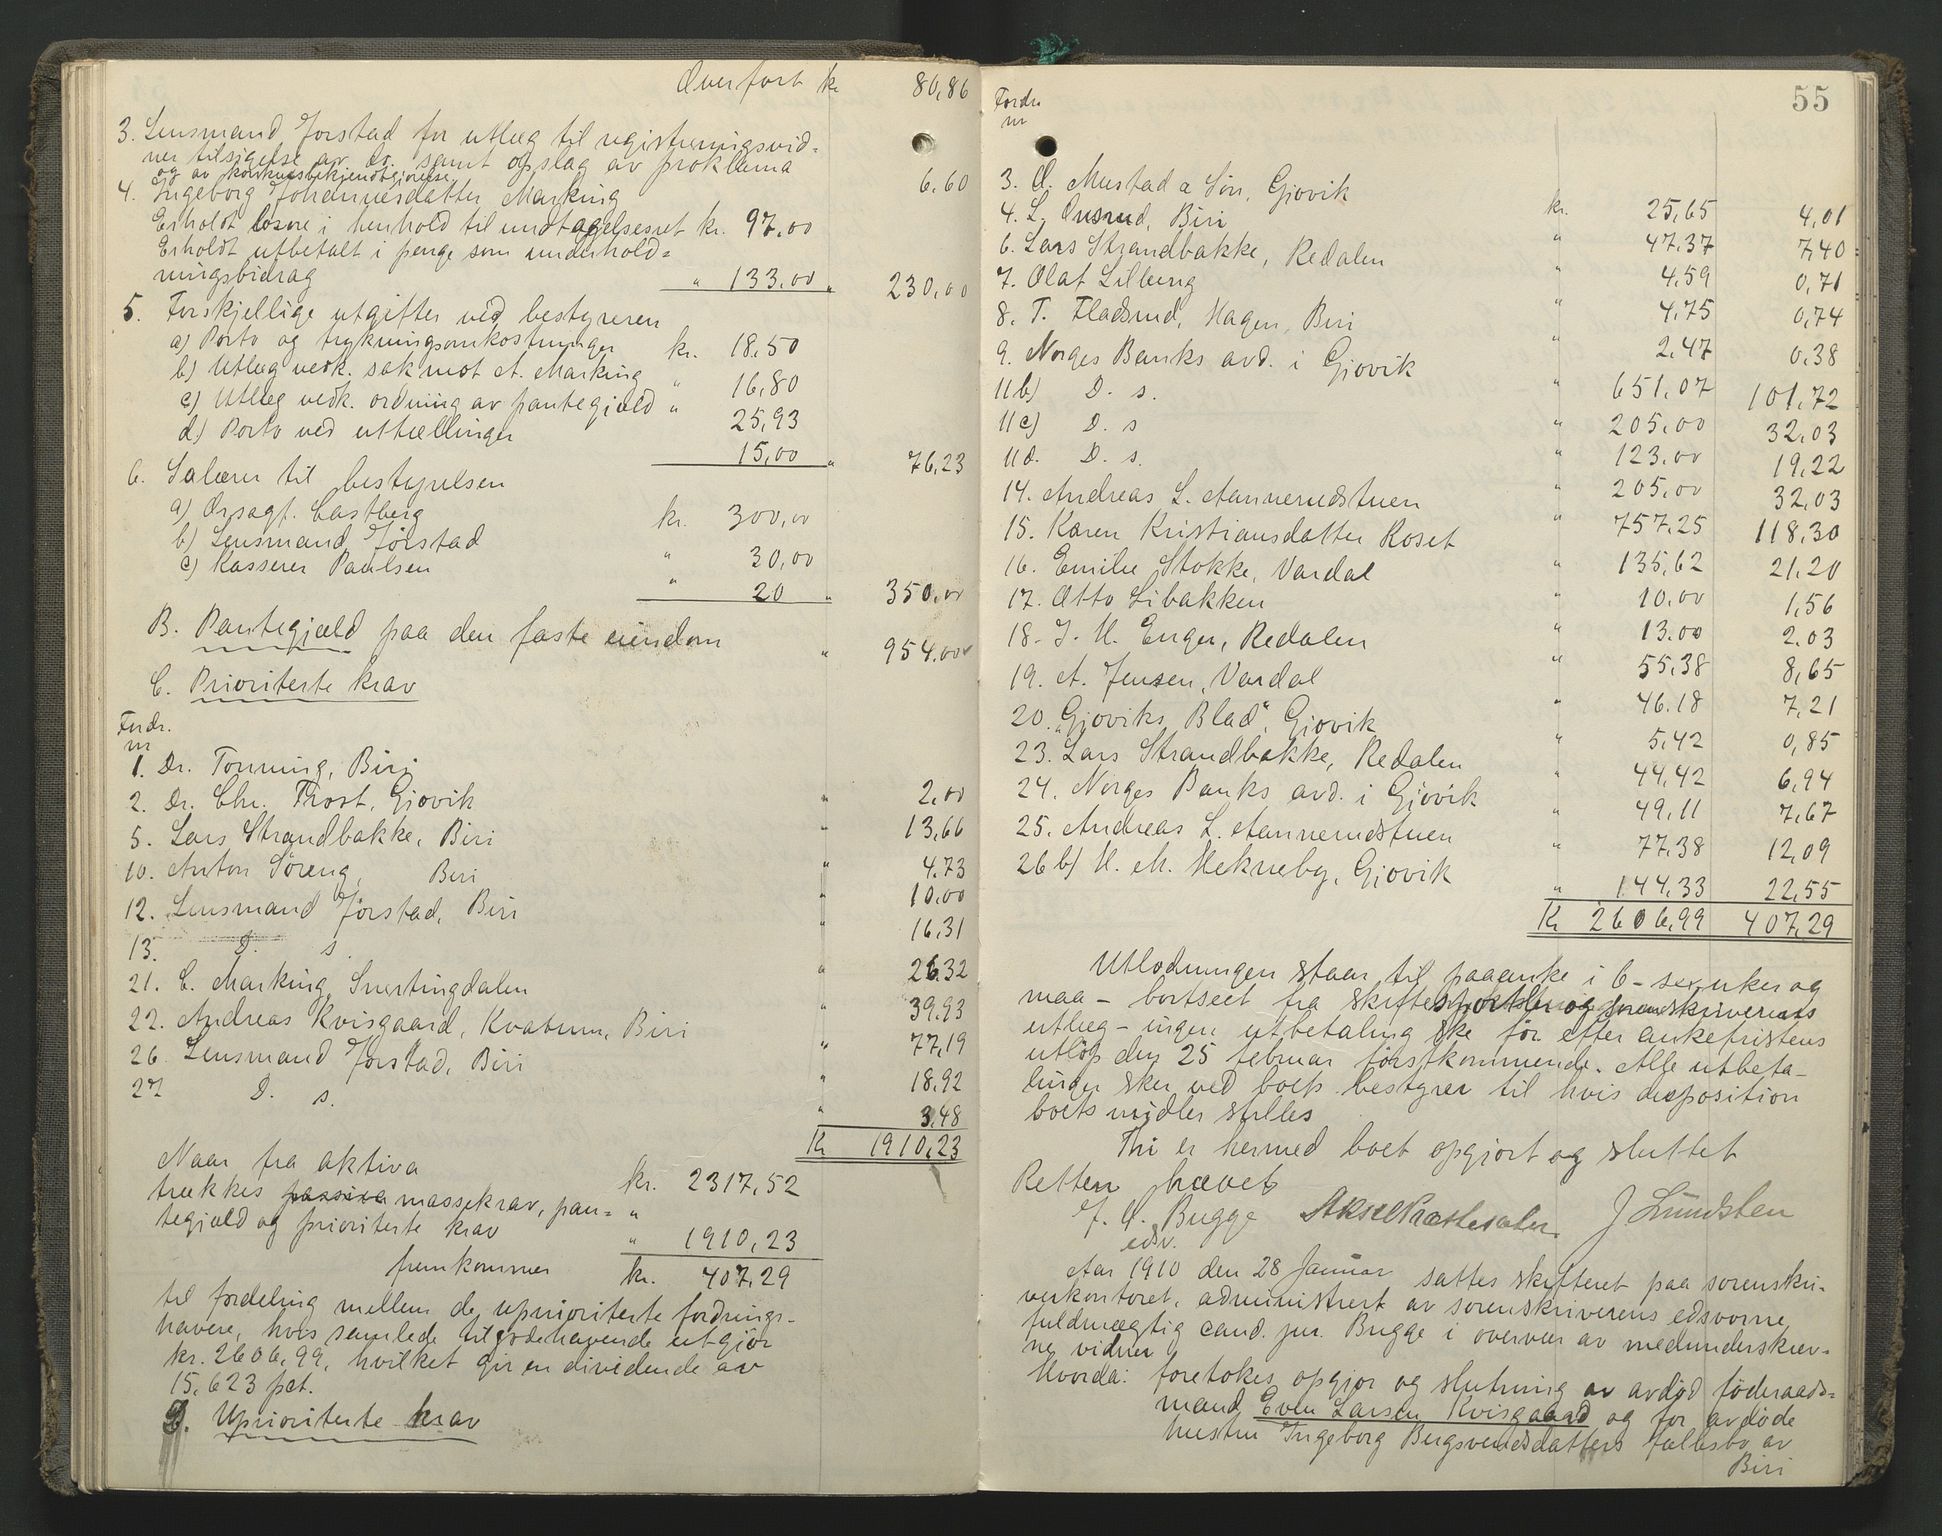 Overført kr 80,86
3. Lensmand Jørstad for utlæg til registreringsvid=
ner tilsigelse av do. samt opslag av proklama
og av konkursbekjendtgjørelse 6,60
4. Ingeborg Johannesdatter Marking
Erholdt løsøre i henhold til undtagelsesret kr. 97,00
Erholdt utbetalt i penge som underhold=
ningsbidrag " 133,00 " 230,00
5. Forskjellige utgifter ved bestyreren
a) Porto og trykningsomkostninger kr. 18,50
b) Utlæg vedk. sak mot A. Marking " 16,80
c) Utlæg vedk. ordning av pantegjæld " 25,93
d) Porto ved uttællinger 15,00 " 76,23
6. Salærer til bestyrelsen
a) Orsagf. Castberg kr. 300,00
b) Lensmand Jørstad " 30,00
c) Kasserer Paulsen " 20 " 350,00
B. Pantegjæld paa den faste eiendom " 954,00
C. Prioriterte krav
Fordr.
nr
1. Dr. Tonning, Biri " 2,00
2. Dr. Chr. Thost, Gjøvik " 13,66
5. Lars Strandbakke, Biri " 4,73
10. Anton Søreng, Biri " 10,00
12. Lensmand Jørstad, Biri " 16,31
13. D. s. " 26,32
21. C. Marking, Snertingdalen " 39,93
22. Andreas Kvisgaard, Kvatum, Biri " 77,19
26. Lensmand Jørstad, Biri " 18,92
27 D. s. " 3,48
Kr 1910,23
Naar fra aktiva kr. 2317,52
trækkes passiva massekrav, pan= "
tegjæld og prioriterte krav " 1910,23
fremkommer kr. 407,29
til fordeling mellem de upriorterte fordrings-
havere, hvis samlede tilgodehavende utgjør
kr. 2606,99, hvilket gir en dividende av
15,623 pct.
D. Upriorterte krav
55
Fordr
nr
3. O. Mustad & Søn, Gjøvik kr. 25,65 4,01
4. L. Onsrud, Biri " 47,37 7,40
6. Lars Strandbakke, Redalen " 4,59 0,71
7. Olaf Lilleeng " 4,75 0,74
8. T. Fladsrud, Hagen, Biri " 2,47 0,38
9. Norges Banks avd. i Gjøvik " 651,07 101,72
11b) D. s. " 205,00 32,03
11c) D. s " 123,00 19,22
11d. D. s. " 205,00 32,03
14. Andreas L. Aannerudstuen " 757,25 118,30
15. Karen Kristiansdatter Roset " 135,62 21,20
16. Emilie Stokke, Vardal " 10,00 1,56
17. Otto Libakken " 13,00 2,03
18. J. H. Enger, Redalen " 55,38 8,65
19. A. Jensen, Vardal " 46,18 7,21
20. "Gjøviks Blad", Gjøvik " 5,42 0,85
23. Lars Strandbakke, Redalen " 44,42 6,94
24. Norges Banks avd. i Gjøvik " 49,11 7,67
25. Andreas L. Aannerudstuen " 77,38 12,09
26 b) H. M. Hekneby, Gjøvik " 144,33 22,55
Kr 2606,99 407,29
Utlodningen staar til paaanke i 6 - sex uker og
maa - bortseet fra skiftesportler og sorenskriverens
utlæg - ingen utbetaling ske før efter ankefristens
utløp den 25 februar førstkommende. Alle utbeta-
linger sker ved boets bestyrer til hvis disposition
boets midler stilles
Thi er hermed boet opgjort og sluttet
Retten hævet
f. A. Bugge Aksel Præstesæter J Lundsten
edsv.
Aar 1910 den 28 Januar sattes skifteret paa sorenskri-
verkontoret, administrert av sorenskriverens edsvorne
fuldmægtig cand. jur. Bugge i overvær av medunderskrev-
ne vidner
Hvorda: foretokes opgjør og slutning av avdød føderaads=
mand Even Larsen Kvisgaard og for avdøde
hustru Ingeborg Bergsveindsdatters fællesbo av
Biri